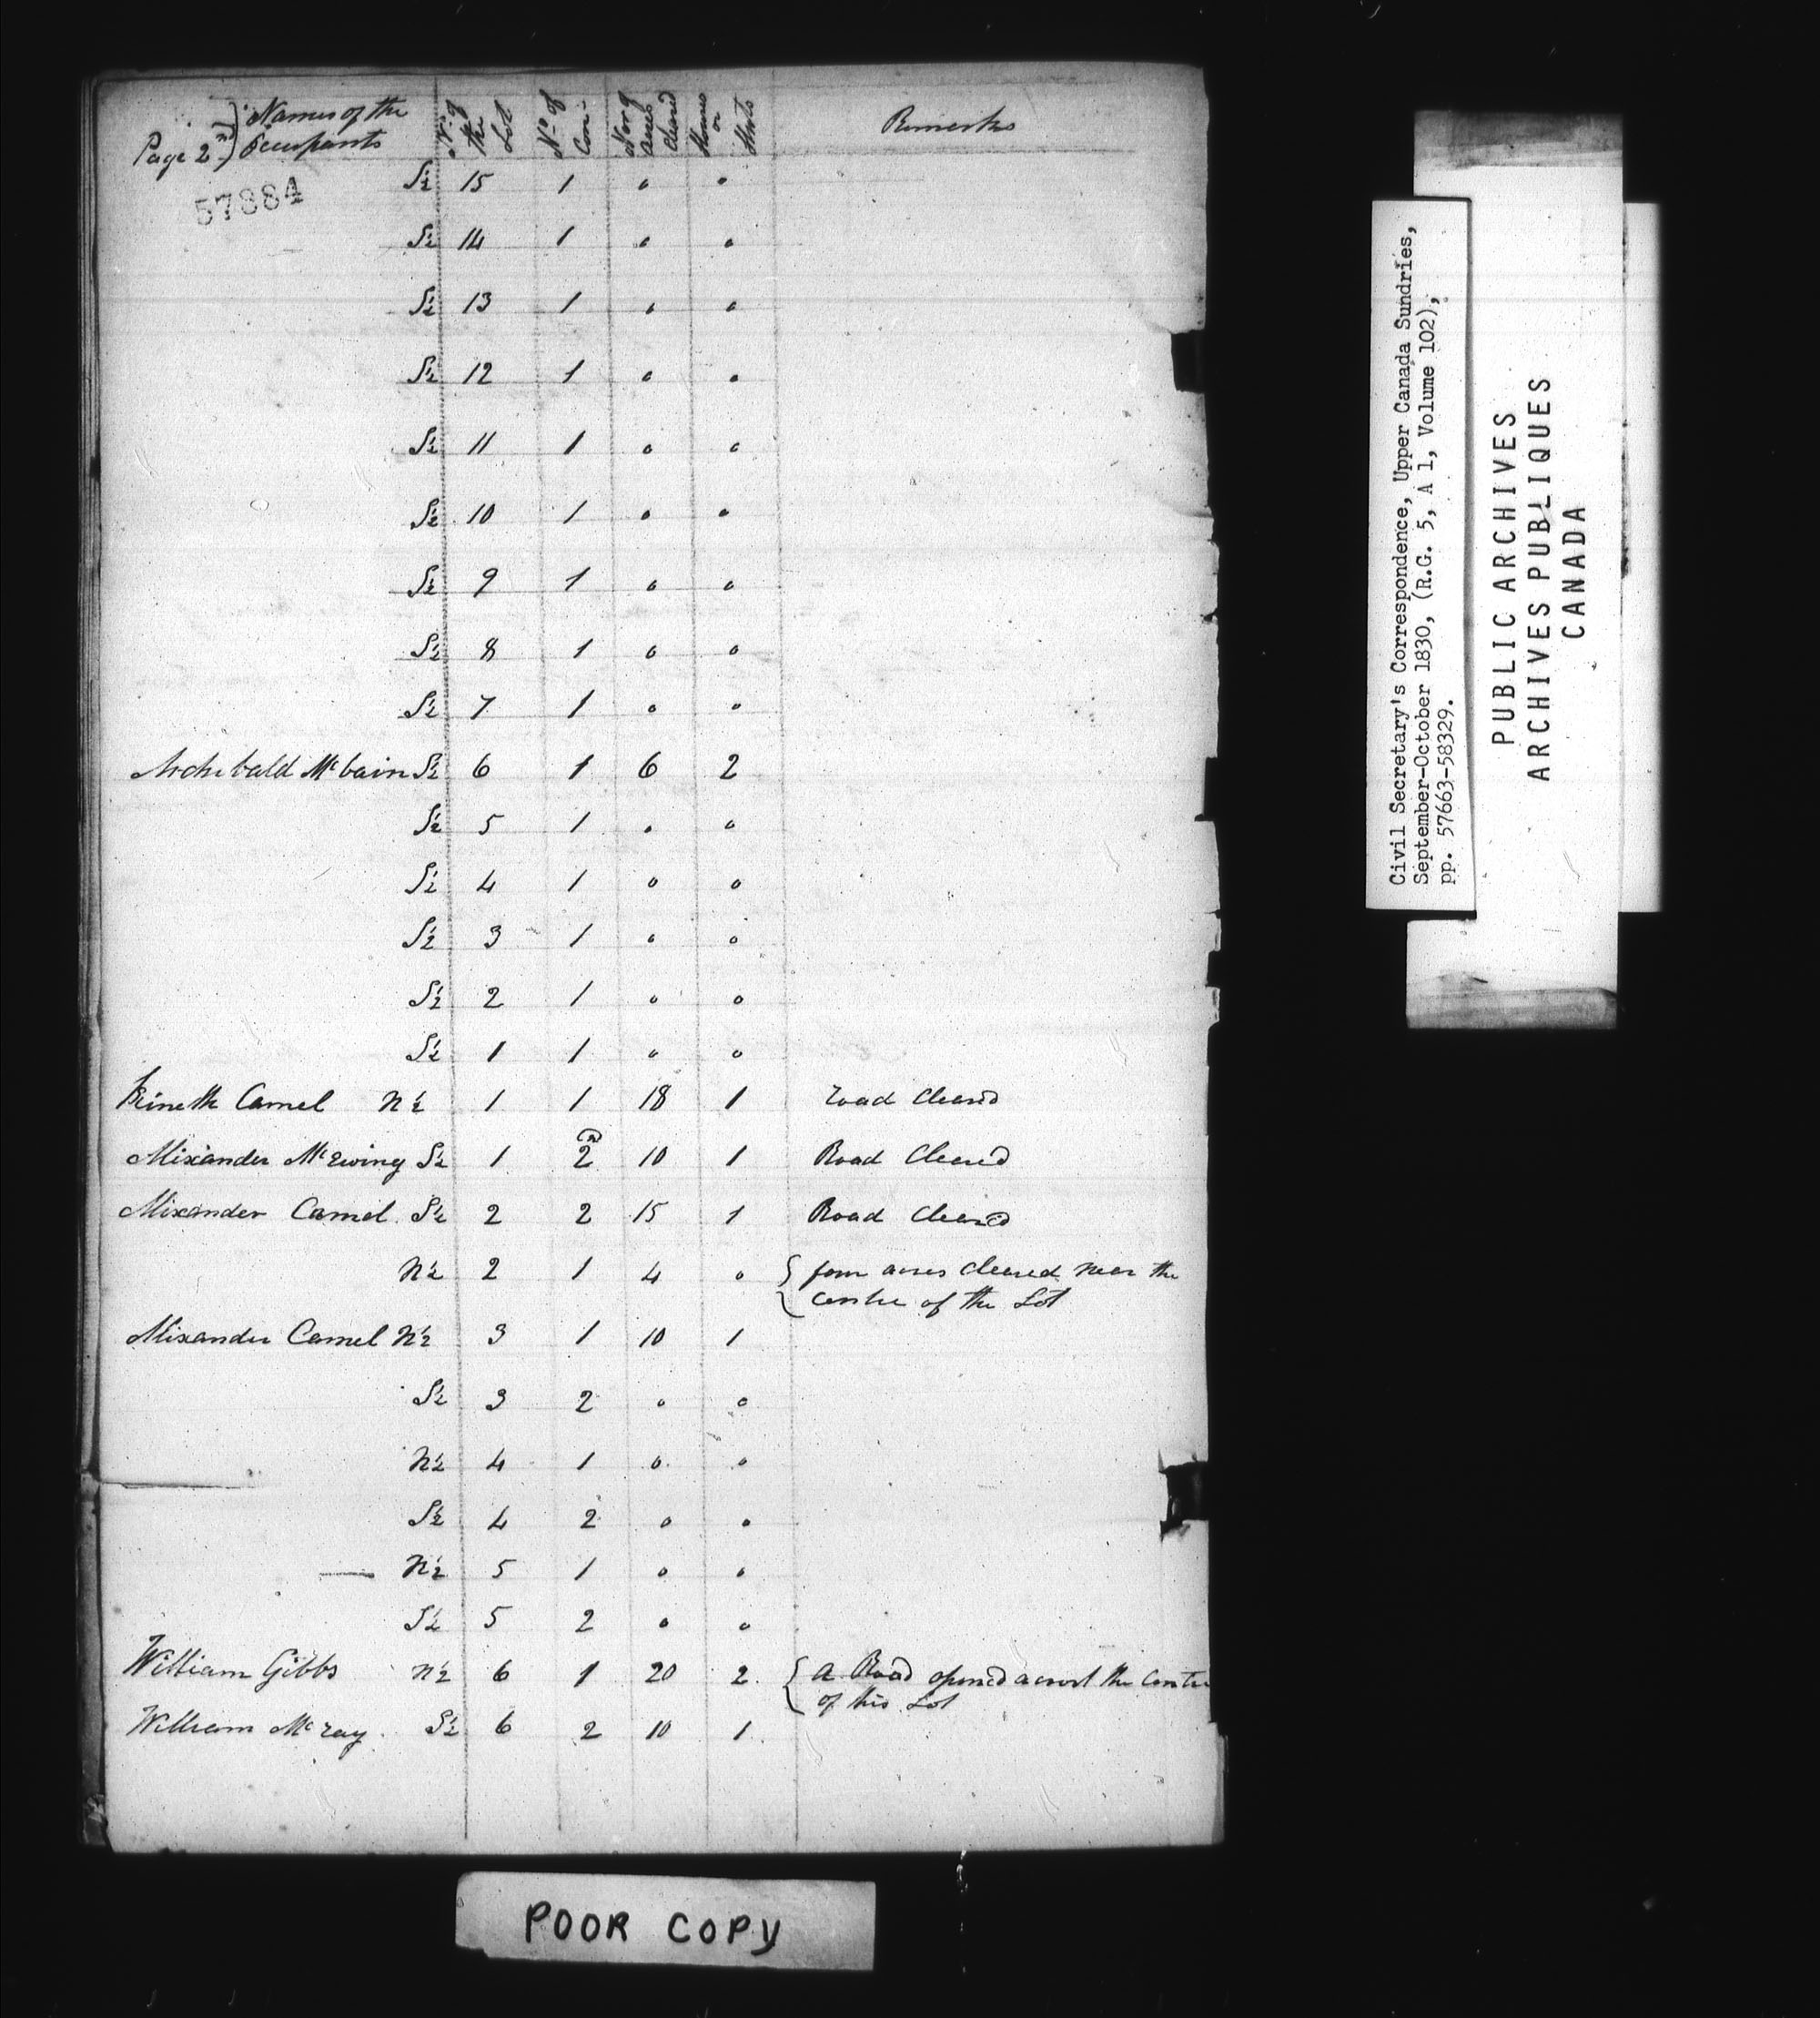 Page 2nd) Names of the Occupants | No. of the Lot | No. of Con- | Nor of acres Cleared | Houses or Huts | Remarks
57884
S½ 15 1 0 0
S½ 14 1 0 0
S½ 13 1 0 0
S½ 12 1 0 0
S½ 11 1 0 0
S½ 10 1 0 0
S½ 9 1 0 0
S½ 8 1 0 0
S½ 7 1 0 0
Archibald McBain S½ 6 1 6 2
S½ 5 1 0 0
S½ 4 1 0 0
S½ 3 1 0 0
S½ 2 1 0 0
S½ 1 1 0 0
Kineth Camel N½ 1 1 18 1 Road Cleared
Alixander McEwing S½ 1 2nd 10 1 Road Cleared
Alixander Camel S½ 2 2 15 1 Road Cleared
N½ 2 1 4 0 { four acres Cleared near the
centre of the Lot
Alixander Camel N½ 3 1 10 1
S½ 3 2 0 0
N½ 4 1 0 0
S½ 4 2 0 0
— N½ 5 1 0 0
S½ 5 2 0 0
William Gibbs N½ 6 1 20 2 { A Road opened acrost the Centre
of this Lot
William McRay S½ 6 2 10 1
POOR COPY
Civil Secretary's Correspondence, Upper Canada Sundries,
September-October 1830, (R.G. 5, A 1, Volume 102),
pp. 57663-58329.
PUBLIC ARCHIVES
ARCHIVES PUBLIQUES
CANADA